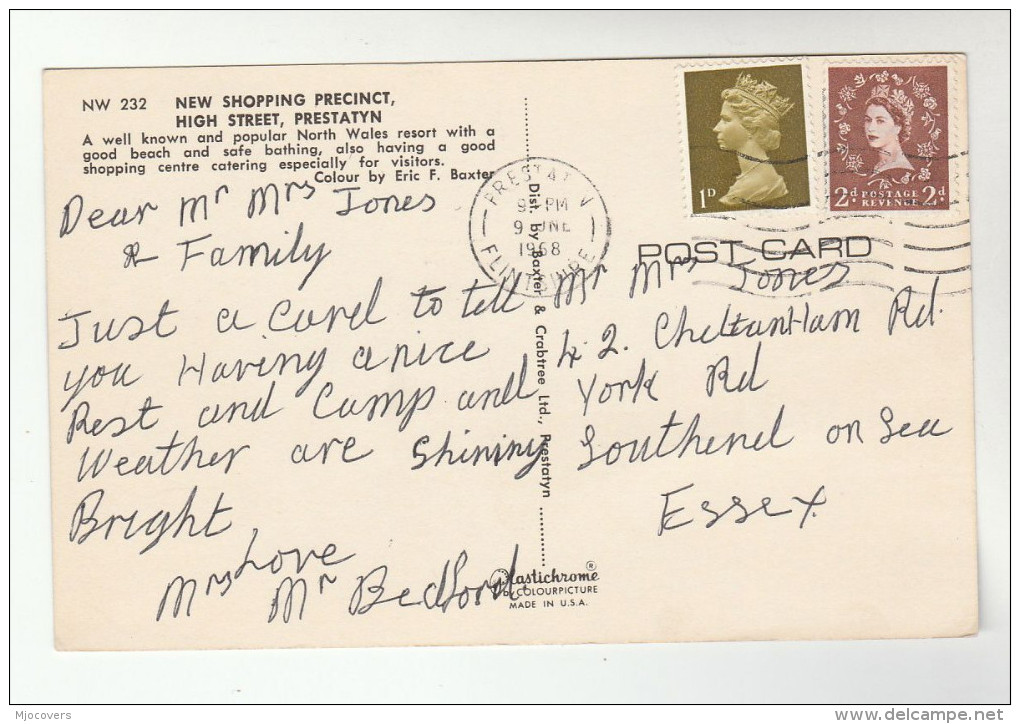 NW 232 NEW SHOPPING PRECINCT,
HIGH STREET, PRESTATYN
A well known and popular North Wales resort with a
good beach and safe bathing, also having a good
shopping centre catering especially for visitors.
Colour by Eric F. Baxter
Dear Mr Mrs Jones
& Family
Just a Card to tell
you Having a nice
Rest and Camp and
Weather are Shining
Bright
Love
Mrs Mr Bedford
Dist. by Baxter & Crabtree Ltd., Prestatyn
Plastichrome ®
by COLOURPICTURE
MADE IN U.S.A.
1D
2d POSTAGE 2d
REVENUE
PRESTATYN
PM
9 JNE
1968
FLINTSHIRE
POST CARD
Mr Mrs Jones
42. Cheltanham Rd.
York Rd
Southend on Sea
Essex.
Mjocovers
delcampe.net